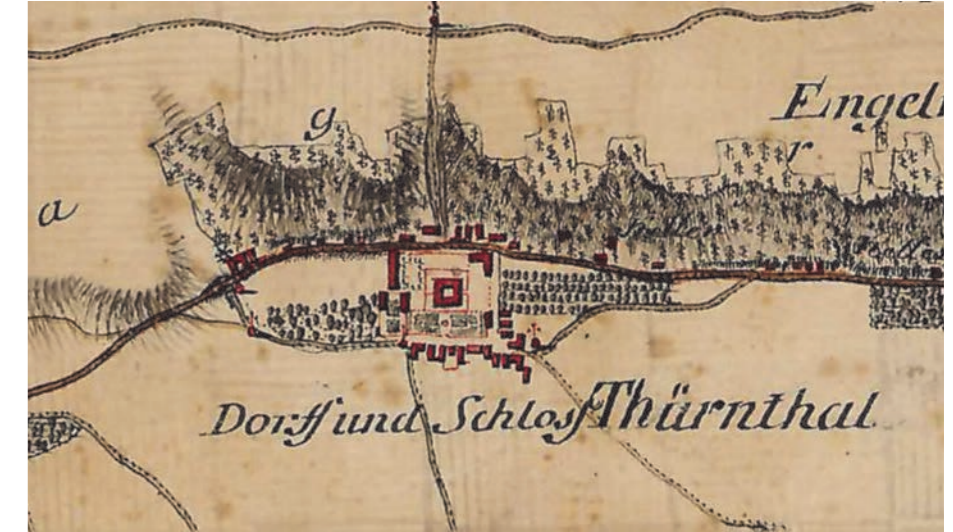 Engel
g
r
a
Dorff und Schloss Thürnthal